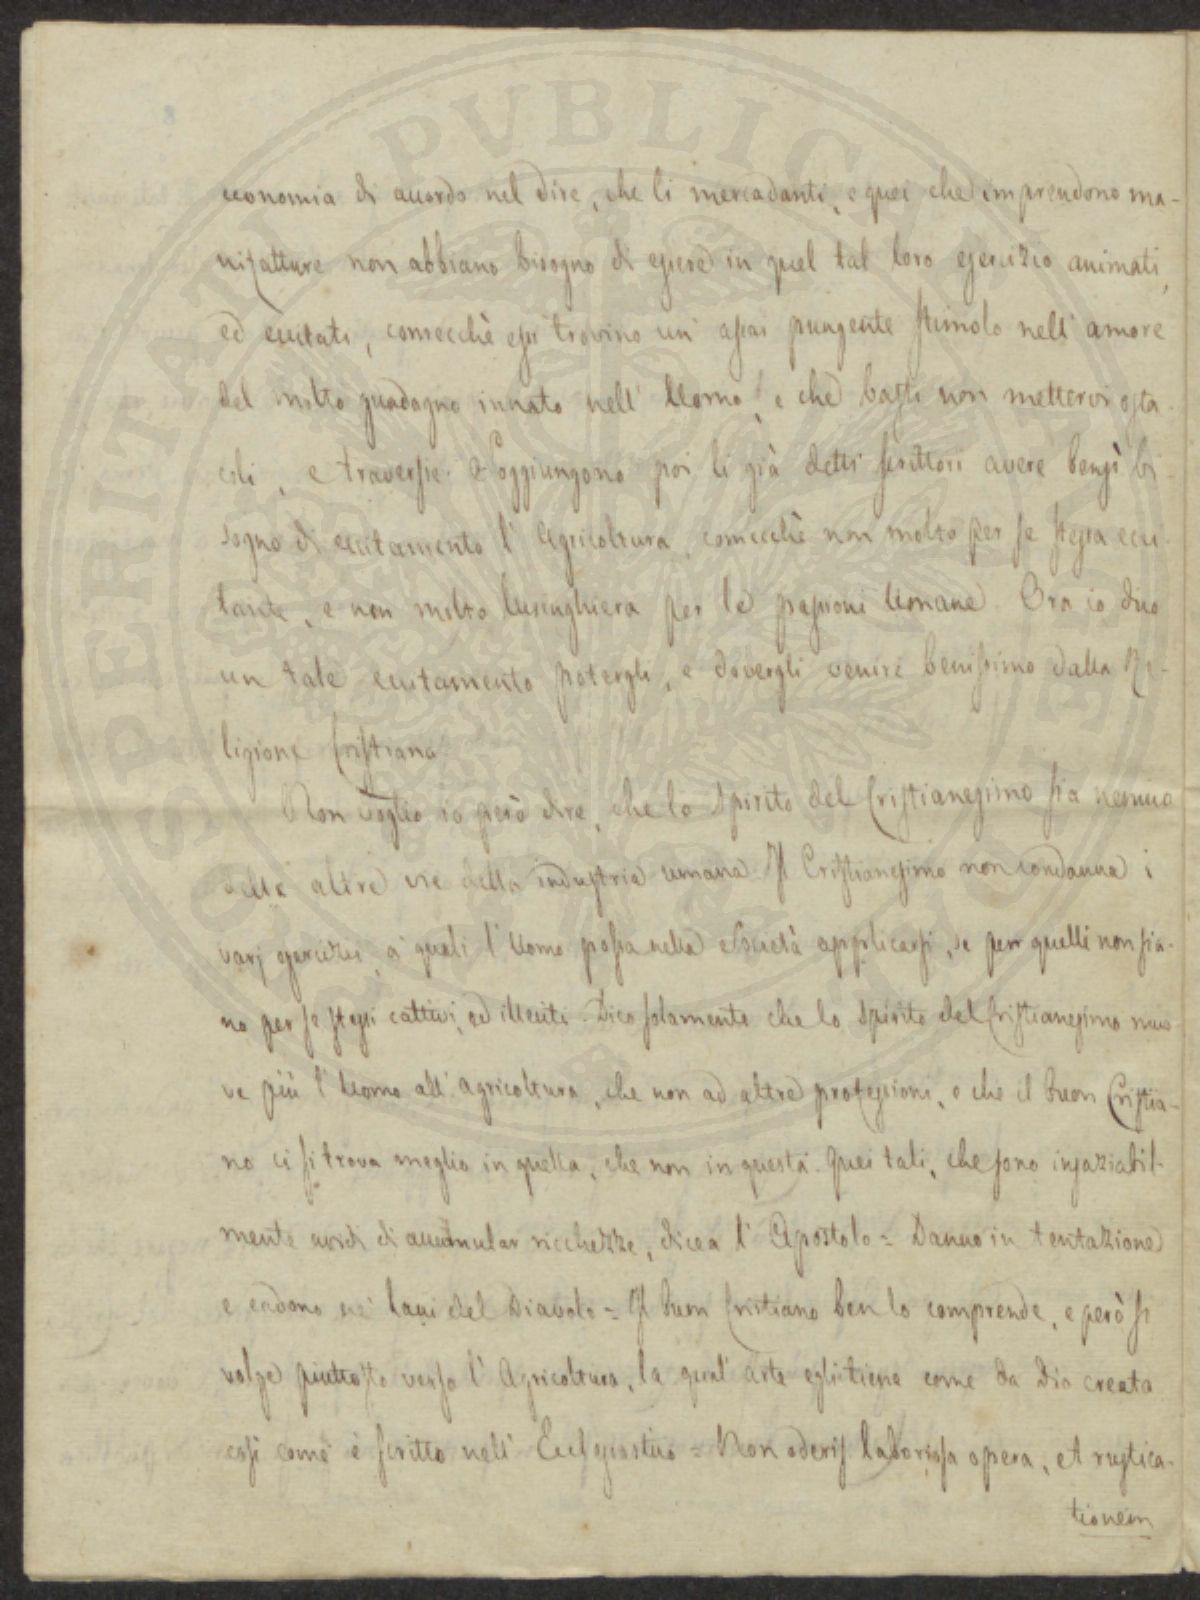 economia di accordo nel dire, che li mercadanti, e quei che imprendono ma-
nifatture non abbiano bisogno di essere in quel tal loro esercizio animati,
ed eccitati, comecchè essi trovino un' assai pungente stimolo nell' amore
del molto guadagno innato nell' Uomo, e che basti non mettervi osta-
coli, e traversie. Soggiungono poi li già detti scrittori avere bensì bi-
sogno di eccitamento l' Agricoltura, comecchè non molto per se stessa ecci-
tante, e non molto lusinghiera per le passioni Umane. Ora io dico
un tale eccitamento potergli, e dovergli venire benissimo dalla Re-
ligione Cristiana.
Non voglio io però dire, che lo Spirito del Cristianesimo sia nemico
delle altre vie della industria umana. Il Cristianesimo non condanna i
varj esercizii, a' quali l' Uomo possa nella Società applicarsi, se pur quelli non sia-
no per se stessi cattivi, ed illeciti. Dico solamente che lo Spirito del Cristianesimo muo-
ve più l' Uomo all' Agricoltura, che non ad altre professioni, e che il buon Cristia-
no ci si trova meglio in quella, che non in questa. Quei tali, che sono insaziabil-
mente avidi di accumular ricchezze, dicea l' Apostolo = Danno in tentazione
e cadono ne' lacci del Diavolo = Il buon Cristiano ben lo comprende, e però si
volge piuttosto verso l' Agricoltura, la qual' arte egli tiene come da Dio creata
così come è scritto nell' Ecclesiastico = Non oderis laboriosa opera, et rustica-
tionem
PROSPERITATI PUBLICAE